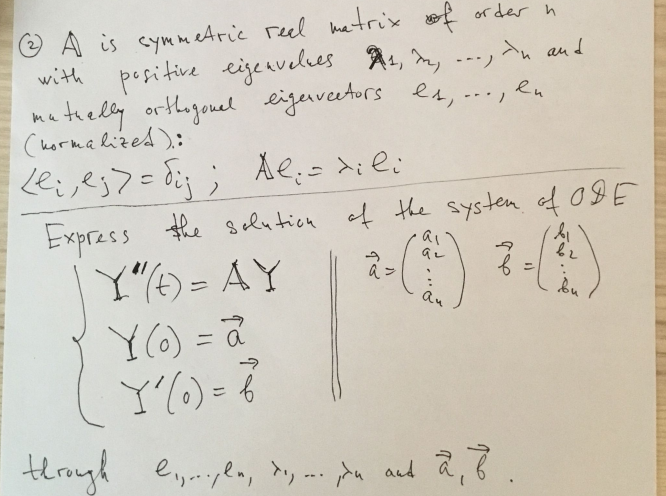 ② A is symmetric real matrix of order n
with positive eigenvalues λ1, λ2, ..., λn and
mutually orthogonal eigenvectors e1, ..., en
(normalized):
<ei, ej> = δij ; Aei = λi ei
Express the solution of the system of ODE
Y''(t) = AY
Y(0) = a⃗
Y'(0) = b⃗
a⃗ = (a1 a2 ⋮ an) b⃗ = (b1 b2 ⋮ bn)
through e1,...,en, λ1,...,λn and a⃗, b⃗.